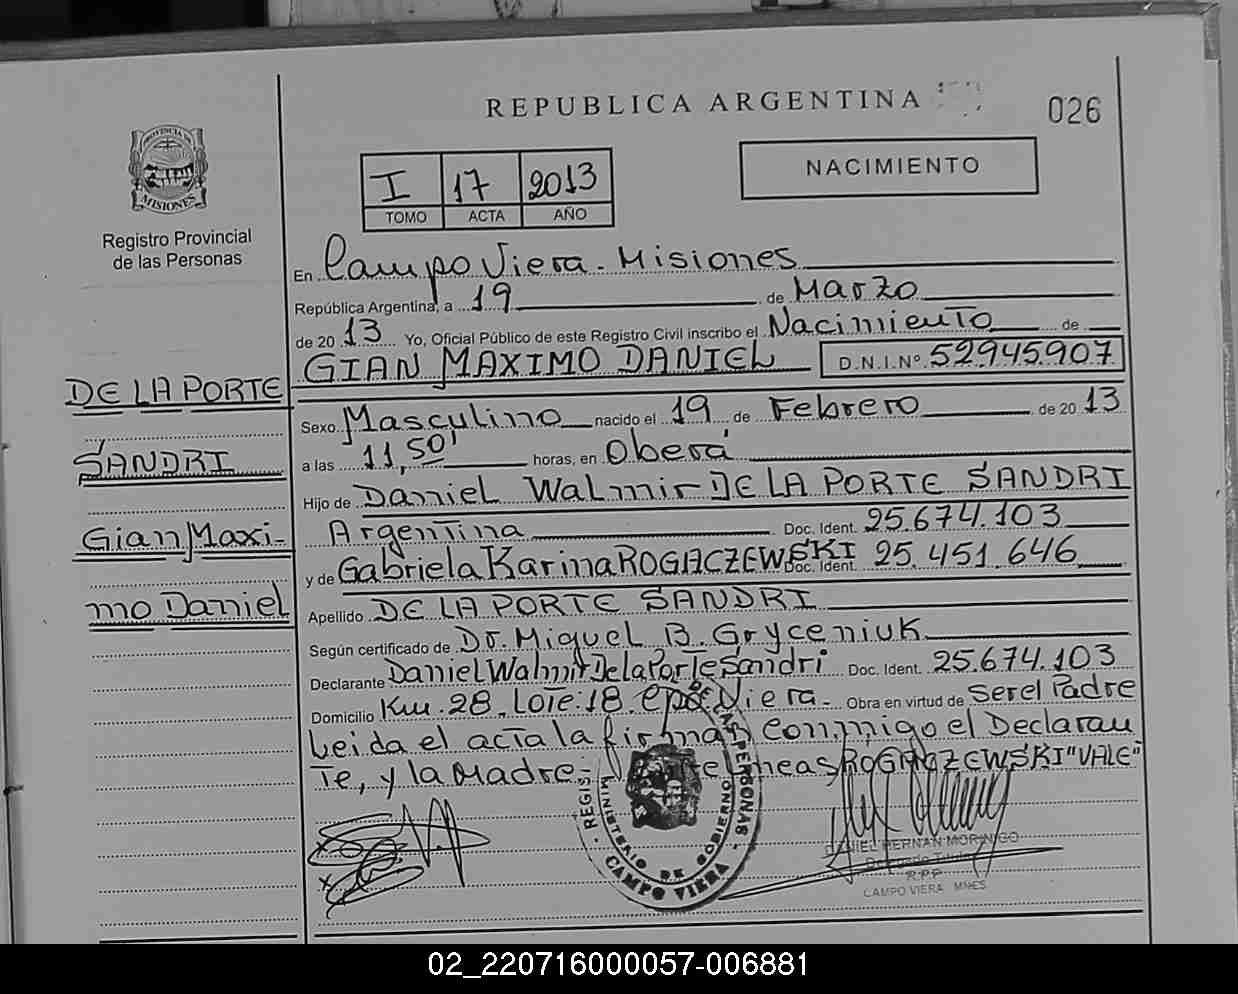 REPUBLICA ARGENTINA
026
PROVINCIA DE
MISIONES
Registro Provincial
de las Personas
I 17 2013
TOMO ACTA AÑO
NACIMIENTO
En Campo Viera - Misiones
República Argentina, a 19 de Marzo
de 20 13 Yo, Oficial Público de este Registro Civil inscribo el Nacimiento de
GIAN MAXIMO DANIEL D.N.I.Nº 52945907
DE LA PORTE
SANDRI
Gian Maxi-
mo Daniel
Sexo Masculino nacido el 19 de Febrero de 20 13
a las 11,50' horas, en Oberá
Hijo de Daniel Walmir DE LA PORTE SANDRI
Argentina Doc. Ident. 25.674.103
y de Gabriela Karina ROGACZEWSKI Doc. Ident. 25.451.646
Apellido DE LA PORTE SANDRI
Según certificado de Dr. Miguel B. Gryceniuk
Declarante Daniel Walmir De la Porte Sandri Doc. Ident. 25.674.103
Domicilio Km. 28. Lote:18. Cpo. Viera. Obra en virtud de Ser el Padre
Leida el acta la firman Conmigo el Declaran
Te, y la Madre; lineas ROGACZEWSKI "VALE"
MINISTERIO DE GOBIERNO
CAMPO VIERA
DANIEL HERNAN MORINIGO
Delegado Titular
R.P.P
CAMPO VIERA MNES
02_220716000057-006881